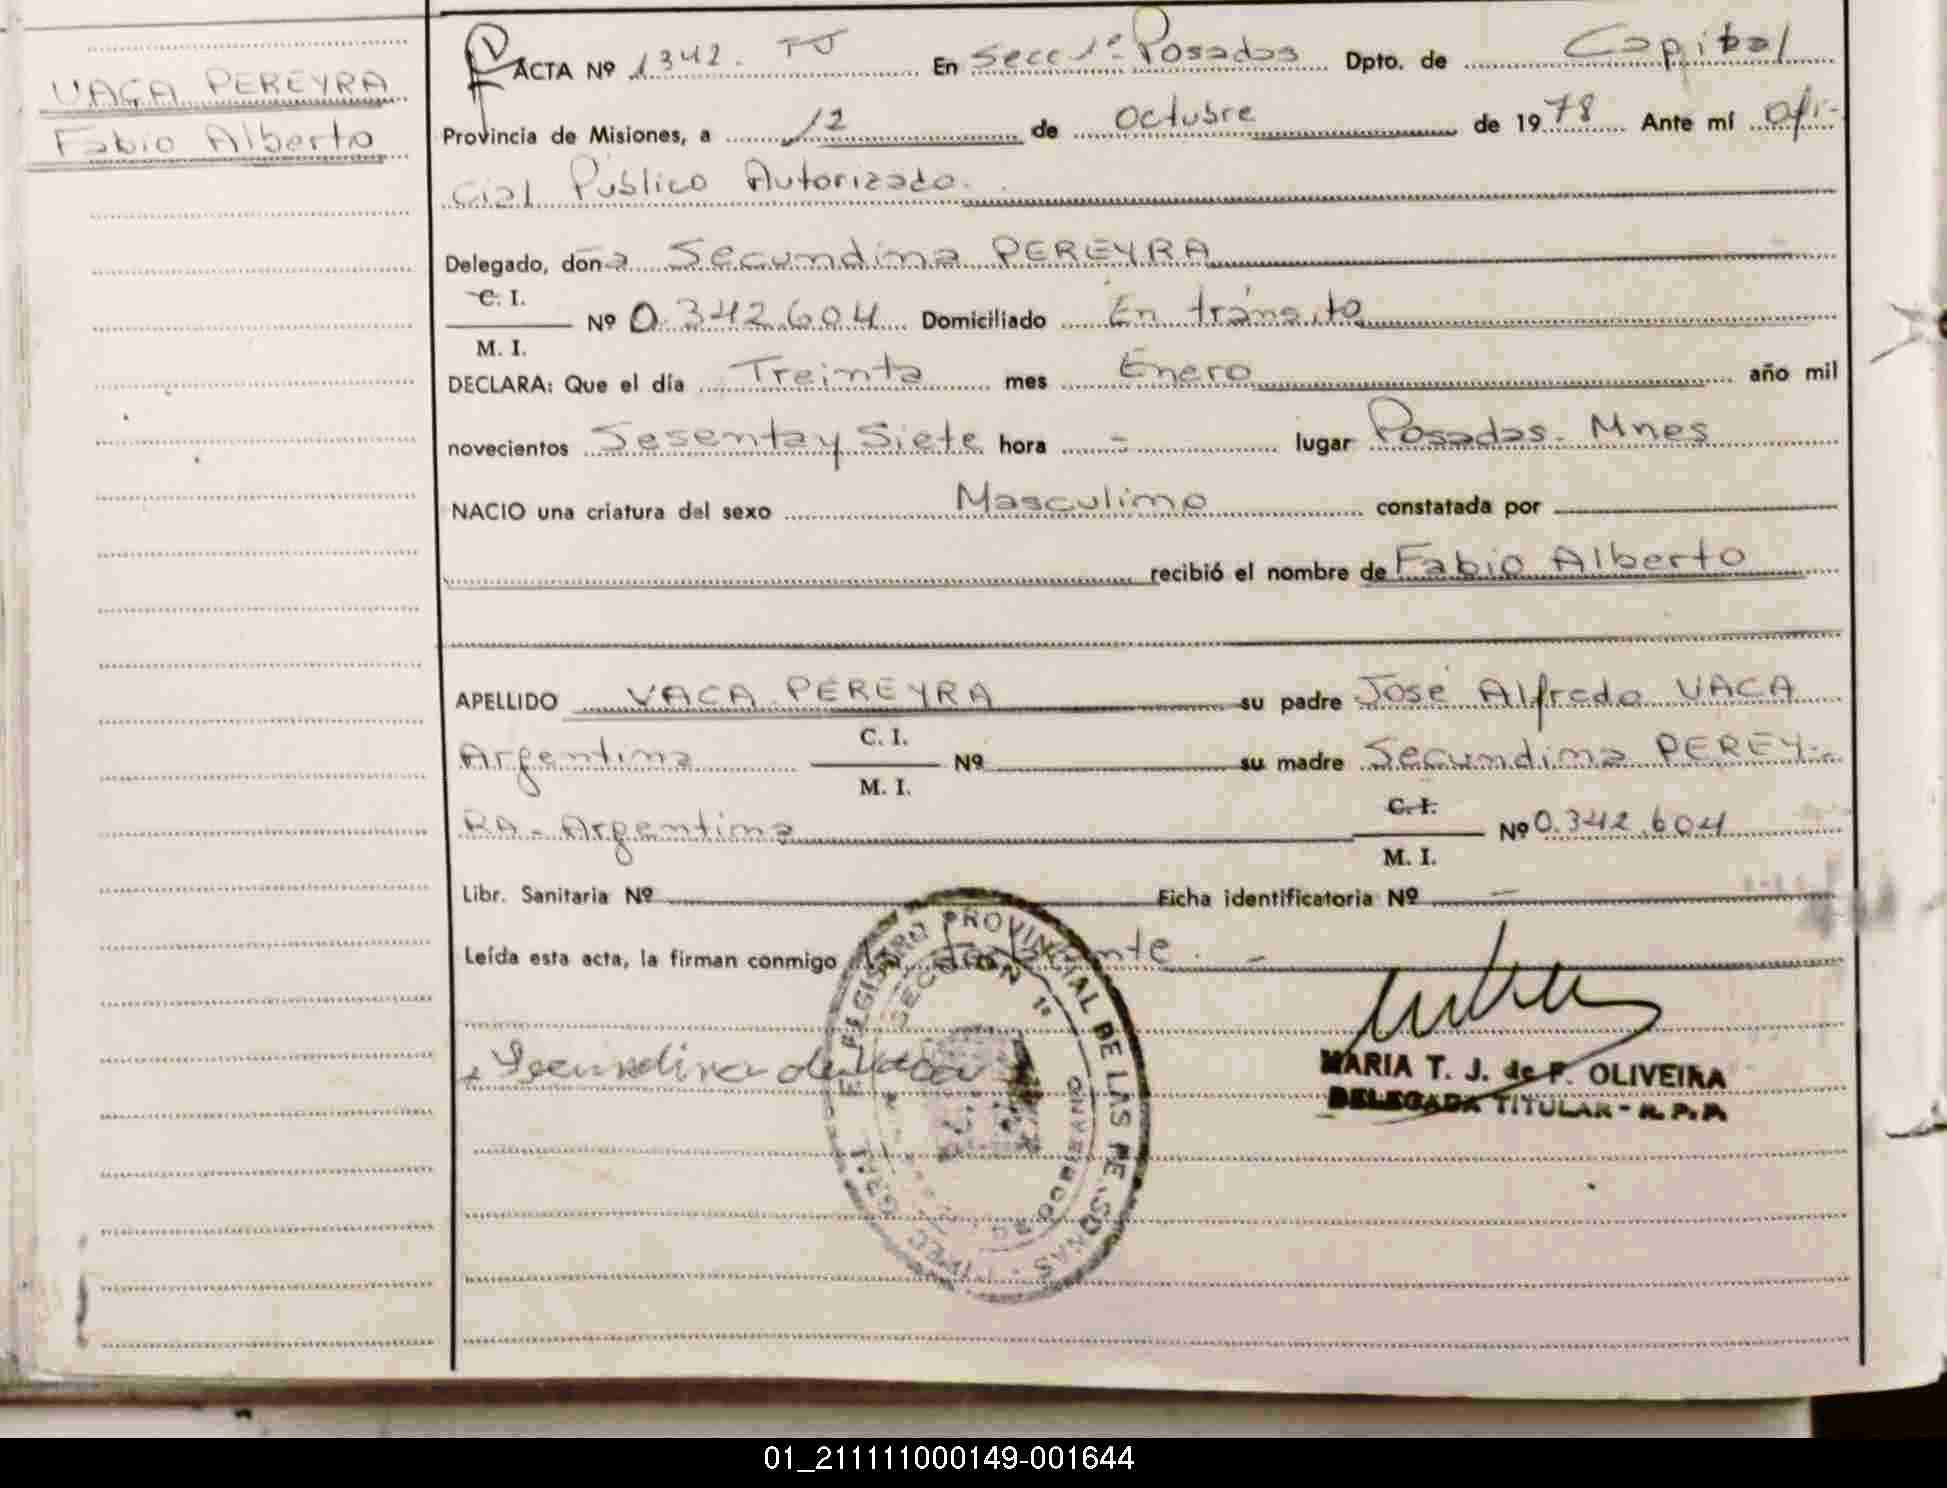 VACA PEREYRA
Fabio Alberto
ACTA Nº 1342. TJ En Secc 1ª Posadas Dpto. de Capital
Provincia de Misiones, a 12 de Octubre de 1978 Ante mí Ofi-
cial Público Autorizado.
Delegado, doña Secundina PEREYRA
C. I.
M. I.
Nº 0.342.604 Domiciliado En tránsito
DECLARA: Que el día Treinta mes Enero año mil
novecientos Sesenta y Siete hora - lugar Posadas - Mnes
NACIO una criatura del sexo Masculino constatada por
recibió el nombre de Fabio Alberto
APELLIDO VACA PEREYRA su padre José Alfredo VACA
Argentina C. I. M. I. Nº su madre Secundina PEREY-
RA - Argentina C. I. M. I. Nº 0.342.604
Libr. Sanitaria Nº Ficha identificatoria Nº -
Leída esta acta, la firman conmigo
REGISTRO PROVINCIAL DE LAS PERSONAS
SECCION 1ª
Secundina de Vaca
MARIA T. J. de P. OLIVEIRA
DELEGADA TITULAR - R. P. P.
01_211111000149-001644